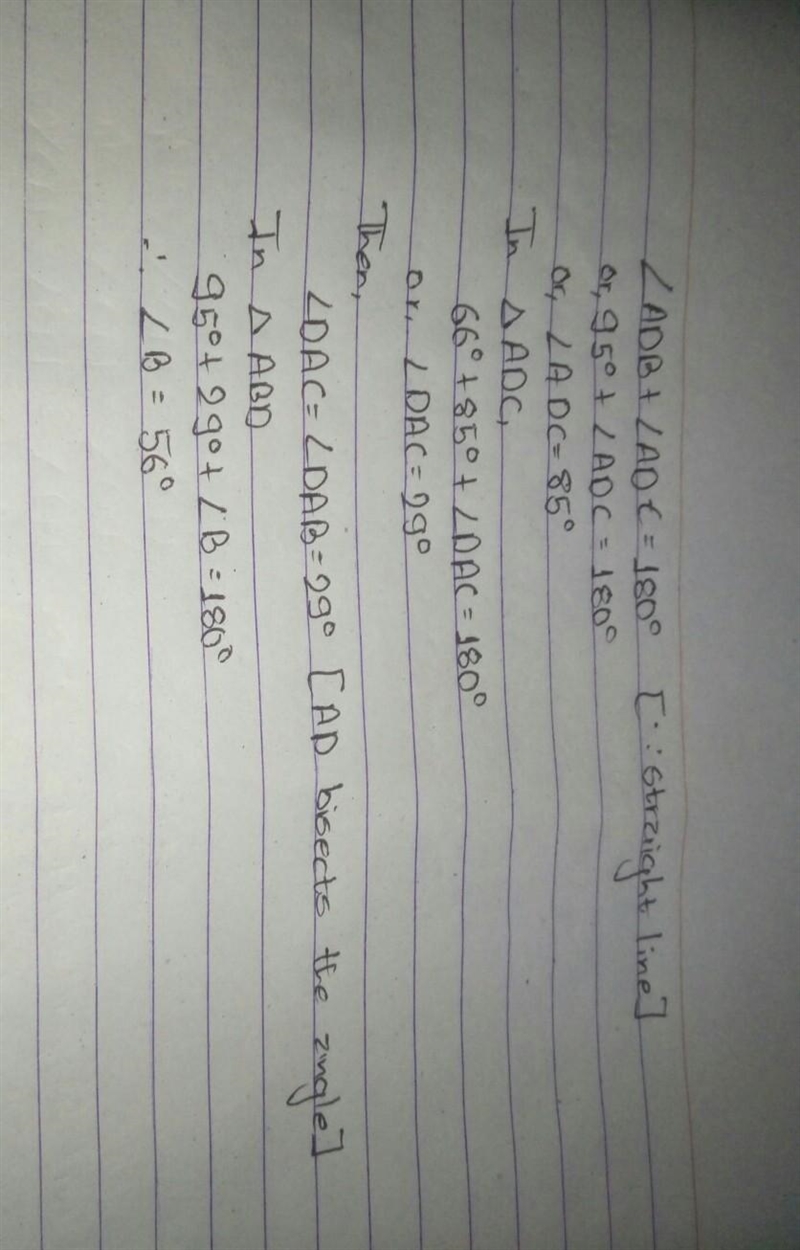 ∠ADB + ∠ADC = 180° [∵ straight line]
or, 95° + ∠ADC = 180°
or, ∠ADC = 85°
In △ ADC,
66° + 85° + ∠DAC = 180°
or, ∠DAC = 29°
Then,
∠DAC = ∠DAB = 29° [AD bisects the angle]
In △ ABD
95° + 29° + ∠B = 180°
∴ ∠B = 56°